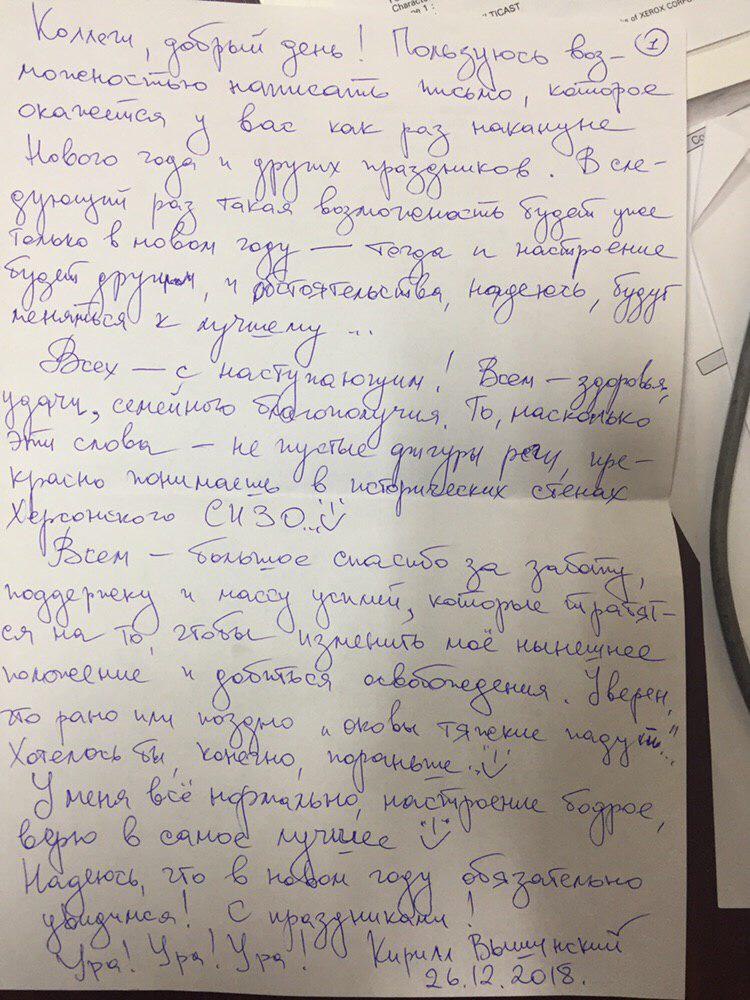 Characte
e 1 :
TICAST
s of XEROX CORPO
1
Коллеги, добрый день! Пользуюсь воз-
можностью написать письмо, которое
окажется у вас как раз накануне
Нового года и других праздников. В сле-
дующий раз такая возможность будет уже
только в новом году — тогда и настроение
будет другим, и обстоятельства, надеюсь, будут
меняться к лучшему ...
Всех — с наступающим! Всем — здоровья,
удачи, семейного благополучия. То, насколько
эти слова — не пустые фигуры речи, пре-
красно понимаешь в исторических стенах
Херсонского СИЗО...
Всем — большое спасибо за заботу,
поддержку и массу усилий, которые тратят-
ся на то, чтобы изменить моё нынешнее
положение и добиться освобождения. Уверен,
что рано или поздно „оковы тяжкие падут..."
Хотелось бы, конечно, пораньше...
У меня всё нормально, настроение бодрое,
верю в самое лучшее
Надеюсь, что в новом году обязательно
увидимся! С праздниками!
Ура! Ура! Ура! Кирилл Вышинский
26.12.2018.